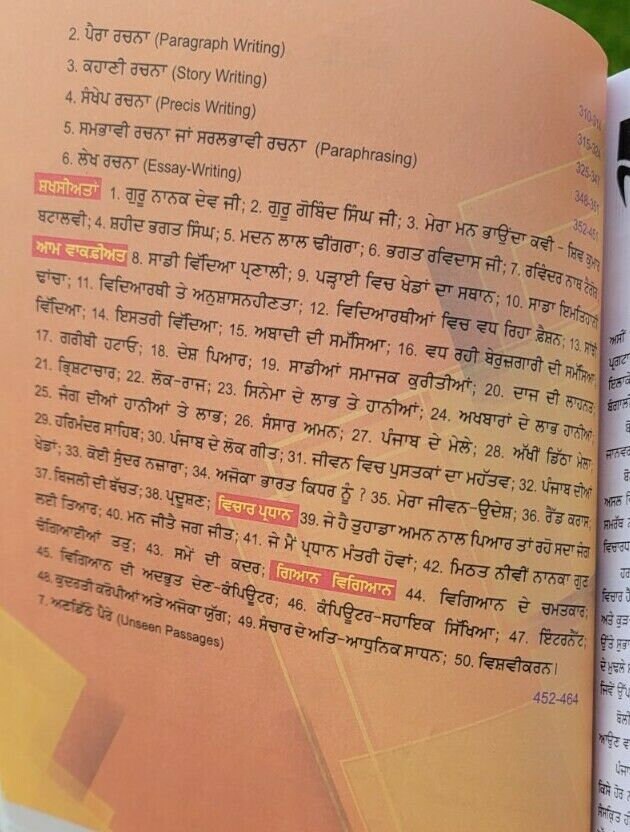 2. ਪੈਰਾ ਰਚਨਾ (Paragraph Writing)
3. ਕਹਾਣੀ ਰਚਨਾ (Story Writing)
4. ਸੰਖੇਪ ਰਚਨਾ (Precis Writing)
5. ਸਮਭਾਵੀ ਰਚਨਾ ਜਾਂ ਸਰਲਭਾਵੀ ਰਚਨਾ (Paraphrasing)
6. ਲੇਖ ਰਚਨਾ (Essay-Writing)
ਸ਼ਖਸੀਅਤਾਂ 1. ਗੁਰੂ ਨਾਨਕ ਦੇਵ ਜੀ; 2. ਗੁਰੂ ਗੋਬਿੰਦ ਸਿੰਘ ਜੀ; 3. ਮੇਰਾ ਮਨ ਭਾਉਂਦਾ ਕਵੀ - ਸ਼ਿਵ ਕੁਮਾਰ
ਬਟਾਲਵੀ; 4. ਸ਼ਹੀਦ ਭਗਤ ਸਿੰਘ; 5. ਮਦਨ ਲਾਲ ਢੀਂਗਰਾ; 6. ਭਗਤ ਰਵਿਦਾਸ ਜੀ; 7. ਰਵਿੰਦਰ ਨਾਥ ਟੈਗੋਰ
ਆਮ ਵਾਕਫ਼ੀਅਤ 8. ਸਾਡੀ ਵਿੱਦਿਆ ਪ੍ਰਣਾਲੀ; 9. ਪੜ੍ਹਾਈ ਵਿਚ ਖੇਡਾਂ ਦਾ ਸਥਾਨ; 10. ਸਾਡਾ ਇਮਤਿਹਾਨੀ
ਢਾਂਚਾ; 11. ਵਿਦਿਆਰਥੀ ਤੇ ਅਨੁਸ਼ਾਸਨਹੀਣਤਾ; 12. ਵਿਦਿਆਰਥੀਆਂ ਵਿਚ ਵਧ ਰਿਹਾ ਫ਼ੈਸ਼ਨ; 13. ਸਾਂਝੀ
ਵਿੱਦਿਆ; 14. ਇਸਤਰੀ ਵਿੱਦਿਆ; 15. ਅਬਾਦੀ ਦੀ ਸਮੱਸਿਆ; 16. ਵਧ ਰਹੀ ਬੇਰੁਜ਼ਗਾਰੀ ਦੀ ਸਮੱਸਿਆ
17. ਗਰੀਬੀ ਹਟਾਓ; 18. ਦੇਸ਼ ਪਿਆਰ; 19. ਸਾਡੀਆਂ ਸਮਾਜਕ ਕੁਰੀਤੀਆਂ; 20. ਦਾਜ ਦੀ ਲਾਹਨਤ
21. ਭ੍ਰਿਸ਼ਟਾਚਾਰ; 22. ਲੋਕ-ਰਾਜ; 23. ਸਿਨੇਮਾ ਦੇ ਲਾਭ ਤੇ ਹਾਨੀਆਂ; 24. ਅਖਬਾਰਾਂ ਦੇ ਲਾਭ ਹਾਨੀਆਂ;
25. ਜੰਗ ਦੀਆਂ ਹਾਨੀਆਂ ਤੇ ਲਾਭ; 26. ਸੰਸਾਰ ਅਮਨ; 27. ਪੰਜਾਬ ਦੇ ਮੇਲੇ; 28. ਅੱਖੀਂ ਡਿੱਠਾ ਮੇਲਾ;
29. ਹਰਿਮੰਦਰ ਸਾਹਿਬ; 30. ਪੰਜਾਬ ਦੇ ਲੋਕ ਗੀਤ; 31. ਜੀਵਨ ਵਿਚ ਪੁਸਤਕਾਂ ਦਾ ਮਹੱਤਵ; 32. ਪੰਜਾਬ ਦੀਆਂ
ਖੇਡਾਂ; 33. ਕੋਈ ਸੁੰਦਰ ਨਜ਼ਾਰਾ; 34. ਅਜੋਕਾ ਭਾਰਤ ਕਿਧਰ ਨੂੰ ? 35. ਮੇਰਾ ਜੀਵਨ-ਉਦੇਸ਼; 36. ਰੈੱਡ ਕਰਾਸ;
37. ਬਿਜਲੀ ਦੀ ਬੱਚਤ; 38. ਪ੍ਰਦੂਸ਼ਣ; ਵਿਚਾਰ ਪ੍ਰਧਾਨ 39. ਜੇ ਹੈ ਤੁਹਾਡਾ ਅਮਨ ਨਾਲ ਪਿਆਰ ਤਾਂ ਰਹੋ ਸਦਾ ਜੰਗ
ਲਈ ਤਿਆਰ; 40. ਮਨ ਜੀਤੈ ਜਗ ਜੀਤ; 41. ਜੇ ਮੈਂ ਪ੍ਰਧਾਨ ਮੰਤਰੀ ਹੋਵਾਂ; 42. ਮਿਠਤ ਨੀਵੀਂ ਨਾਨਕਾ ਗੁਣ
ਚੰਗਿਆਈਆਂ ਤਤੁ; 43. ਸਮੇਂ ਦੀ ਕਦਰ; ਗਿਆਨ ਵਿਗਿਆਨ 44. ਵਿਗਿਆਨ ਦੇ ਚਮਤਕਾਰ;
45. ਵਿਗਿਆਨ ਦੀ ਅਦਭੁਤ ਦੇਣ-ਕੰਪਿਊਟਰ; 46. ਕੰਪਿਊਟਰ-ਸਹਾਇਕ ਸਿੱਖਿਆ; 47. ਇੰਟਰਨੈੱਟ;
48. ਕੁਦਰਤੀ ਕਰੋਪੀਆਂ ਅਤੇ ਅਜੋਕਾ ਯੁੱਗ; 49. ਸੰਚਾਰ ਦੇ ਅਤਿ-ਆਧੁਨਿਕ ਸਾਧਨ; 50. ਵਿਸ਼ਵੀਕਰਨ।
7. ਅਣਡਿੱਠੇ ਪੈਰੇ (Unseen Passages)
452-464